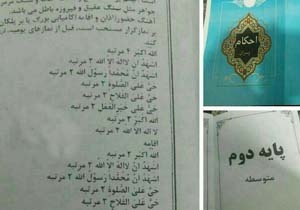 جواهر مثل سنگ عقیق و فیروزه باطل می‌باشد.
آهنگ حضور اذان و اقامه
بر نمازگزار مستحب است، قبل از نمازهای یومیه،
کند
الله اکبر ۴ مرتبه
اشهد ان لا اله الا الله ۲ مرتبه
اشهد ان محمدا رسول الله ۲ مرتبه
حی علی الصلوة ۲ مرتبه
حی علی الفلاح ۲ مرتبه
حی علی خیر العمل ۲ مرتبه
الله اکبر ۲ مرتبه
لا اله الا الله ۲ مرتبه
اقامه
الله اکبر ۲ مرتبه
اشهد ان لا اله الا الله ۲ مرتبه
اشهد ان محمدا رسول الله ۲ مرتبه
حی علی الصلوة ۲ مرتبه
حی علی الفلاح ۲ مرتبه
احکام
پایه دوم
متوسطه